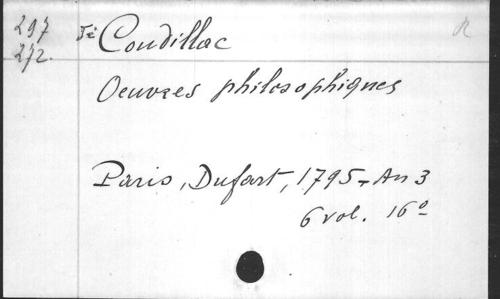 297 Condillac
272.
Oeuvres philosophiques
Paris, Dufart, 1795-An 3
6 vol. 16°